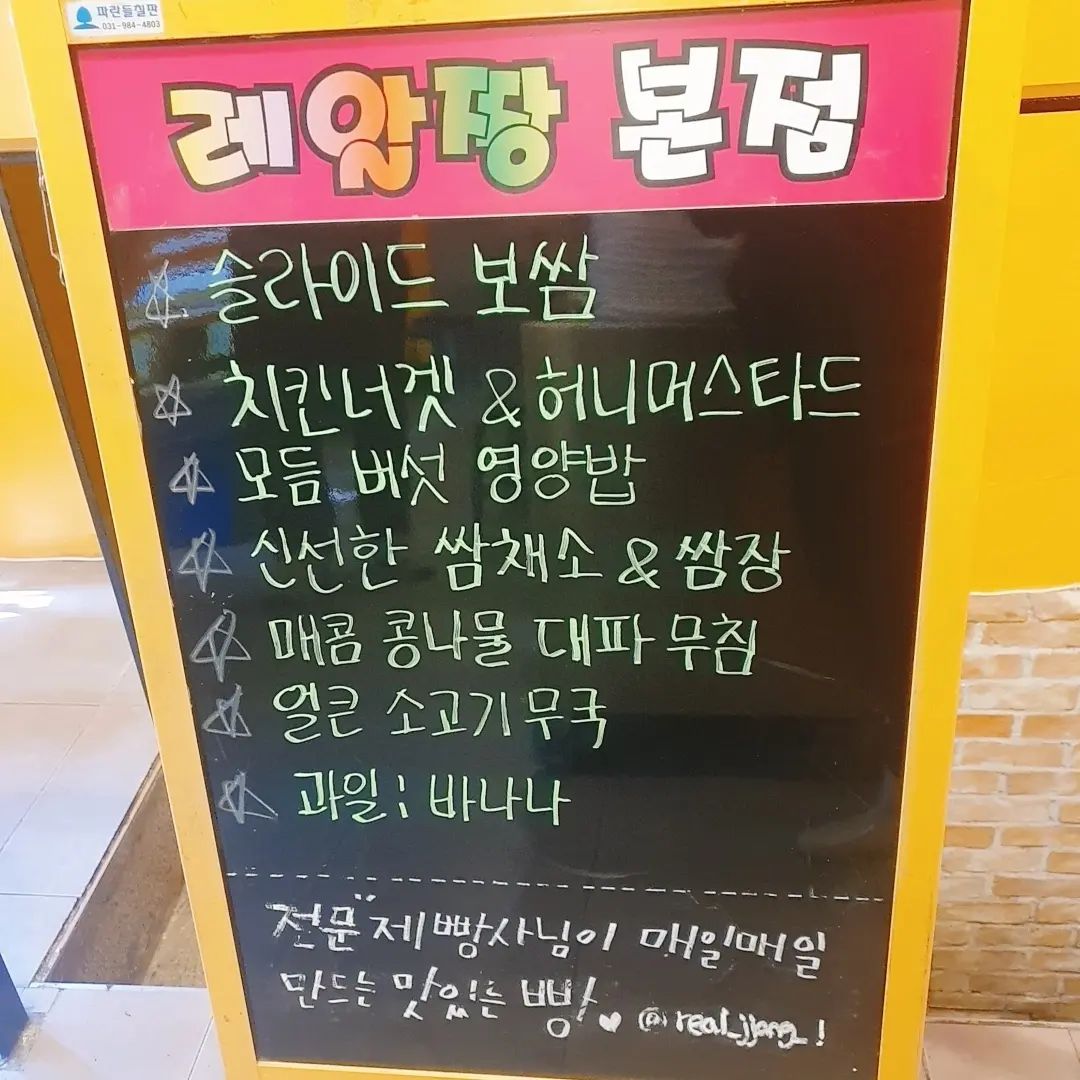 파란들칠판
031-984-4803
레알짱 본점
슬라이드 보쌈
치킨너겟 & 허니머스타드
모듬 버섯 영양밥
신선한 쌈채소 & 쌈장
매콤 콩나물 대파 무침
얼큰 소고기무국
과일 : 바나나
전문 제빵사님이 매일매일
만드는 맛있는 빵 ♥ @real_jjang_!